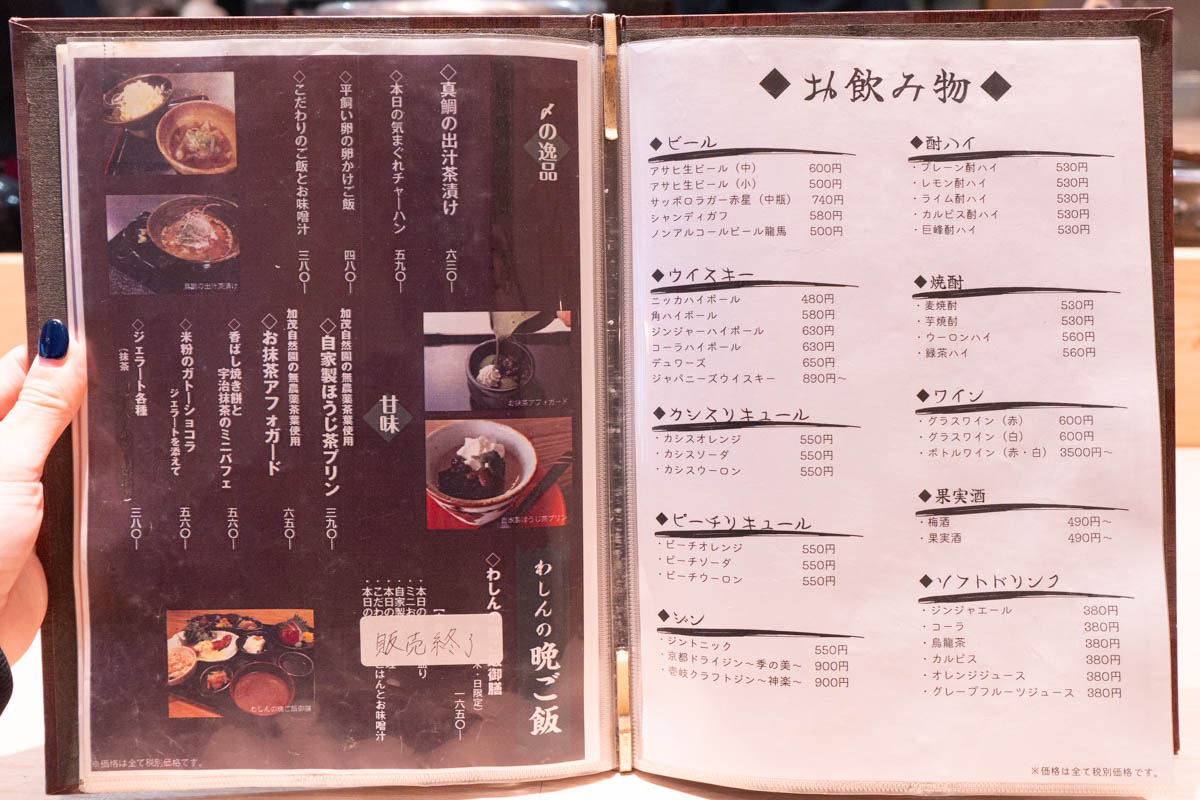 〆の逸品
◇真鯛の出汁茶漬け 六三〇―
◇本日の気まぐれチャーハン 五九〇―
◇平飼い卵の卵かけご飯 四八〇―
◇こだわりのご飯とお味噌汁 三八〇―
真鯛の出汁茶漬け
甘味
加茂自然園の無農薬茶葉使用
◇自家製ほうじ茶プリン 三九〇―
加茂自然園の無農薬茶葉使用
◇お抹茶アフォガード 六五〇―
◇香ばし焼き餅と
宇治抹茶のミニパフェ 五六〇―
◇米粉のガトーショコラ
ジェラートを添えて 五六〇―
◇ジェラート各種
(抹茶 三八〇―
お抹茶アフォガード
自家製ほうじ茶プリン
わしんの晩ご飯
◇わしん 御膳
・日限定)
一六五〇―
・本日の 盛り
・ミニお
・自家製
・本日の
・こだわ ごはんとお味噌汁
・本日の
販売終了
わしんの晩ご飯御膳
※価格は全て税別価格です。
◆お飲み物◆
◆ビール
アサヒ生ビール（中） 600円
アサヒ生ビール（小） 500円
サッポロラガー赤星（中瓶） 740円
シャンディガフ 580円
ノンアルコールビール龍馬 500円
◆ウイスキー
ニッカハイボール 480円
角ハイボール 580円
ジンジャーハイボール 630円
コーラハイボール 630円
デュワーズ 650円
ジャパニーズウイスキー 890円～
◆カシスリキュール
・カシスオレンジ 550円
・カシスソーダ 550円
・カシスウーロン 550円
◆ピーチリキュール
・ピーチオレンジ 550円
・ピーチソーダ 550円
・ピーチウーロン 550円
◆ジン
・ジントニック 550円
・京都ドライジン～季の美～ 900円
・壱岐クラフトジン～神楽～ 900円
◆酎ハイ
・プレーン酎ハイ 530円
・レモン酎ハイ 530円
・ライム酎ハイ 530円
・カルピス酎ハイ 530円
・巨峰酎ハイ 530円
◆焼酎
・麦焼酎 530円
・芋焼酎 530円
・ウーロンハイ 560円
・緑茶ハイ 560円
◆ワイン
・グラスワイン（赤） 600円
・グラスワイン（白） 600円
・ボトルワイン（赤・白） 3500円～
◆果実酒
・梅酒 490円～
・果実酒 490円～
◆ソフトドリンク
・ジンジャエール 380円
・コーラ 380円
・烏龍茶 380円
・カルピス 380円
・オレンジジュース 380円
・グレープフルーツジュース 380円
※価格は全て税別価格です。